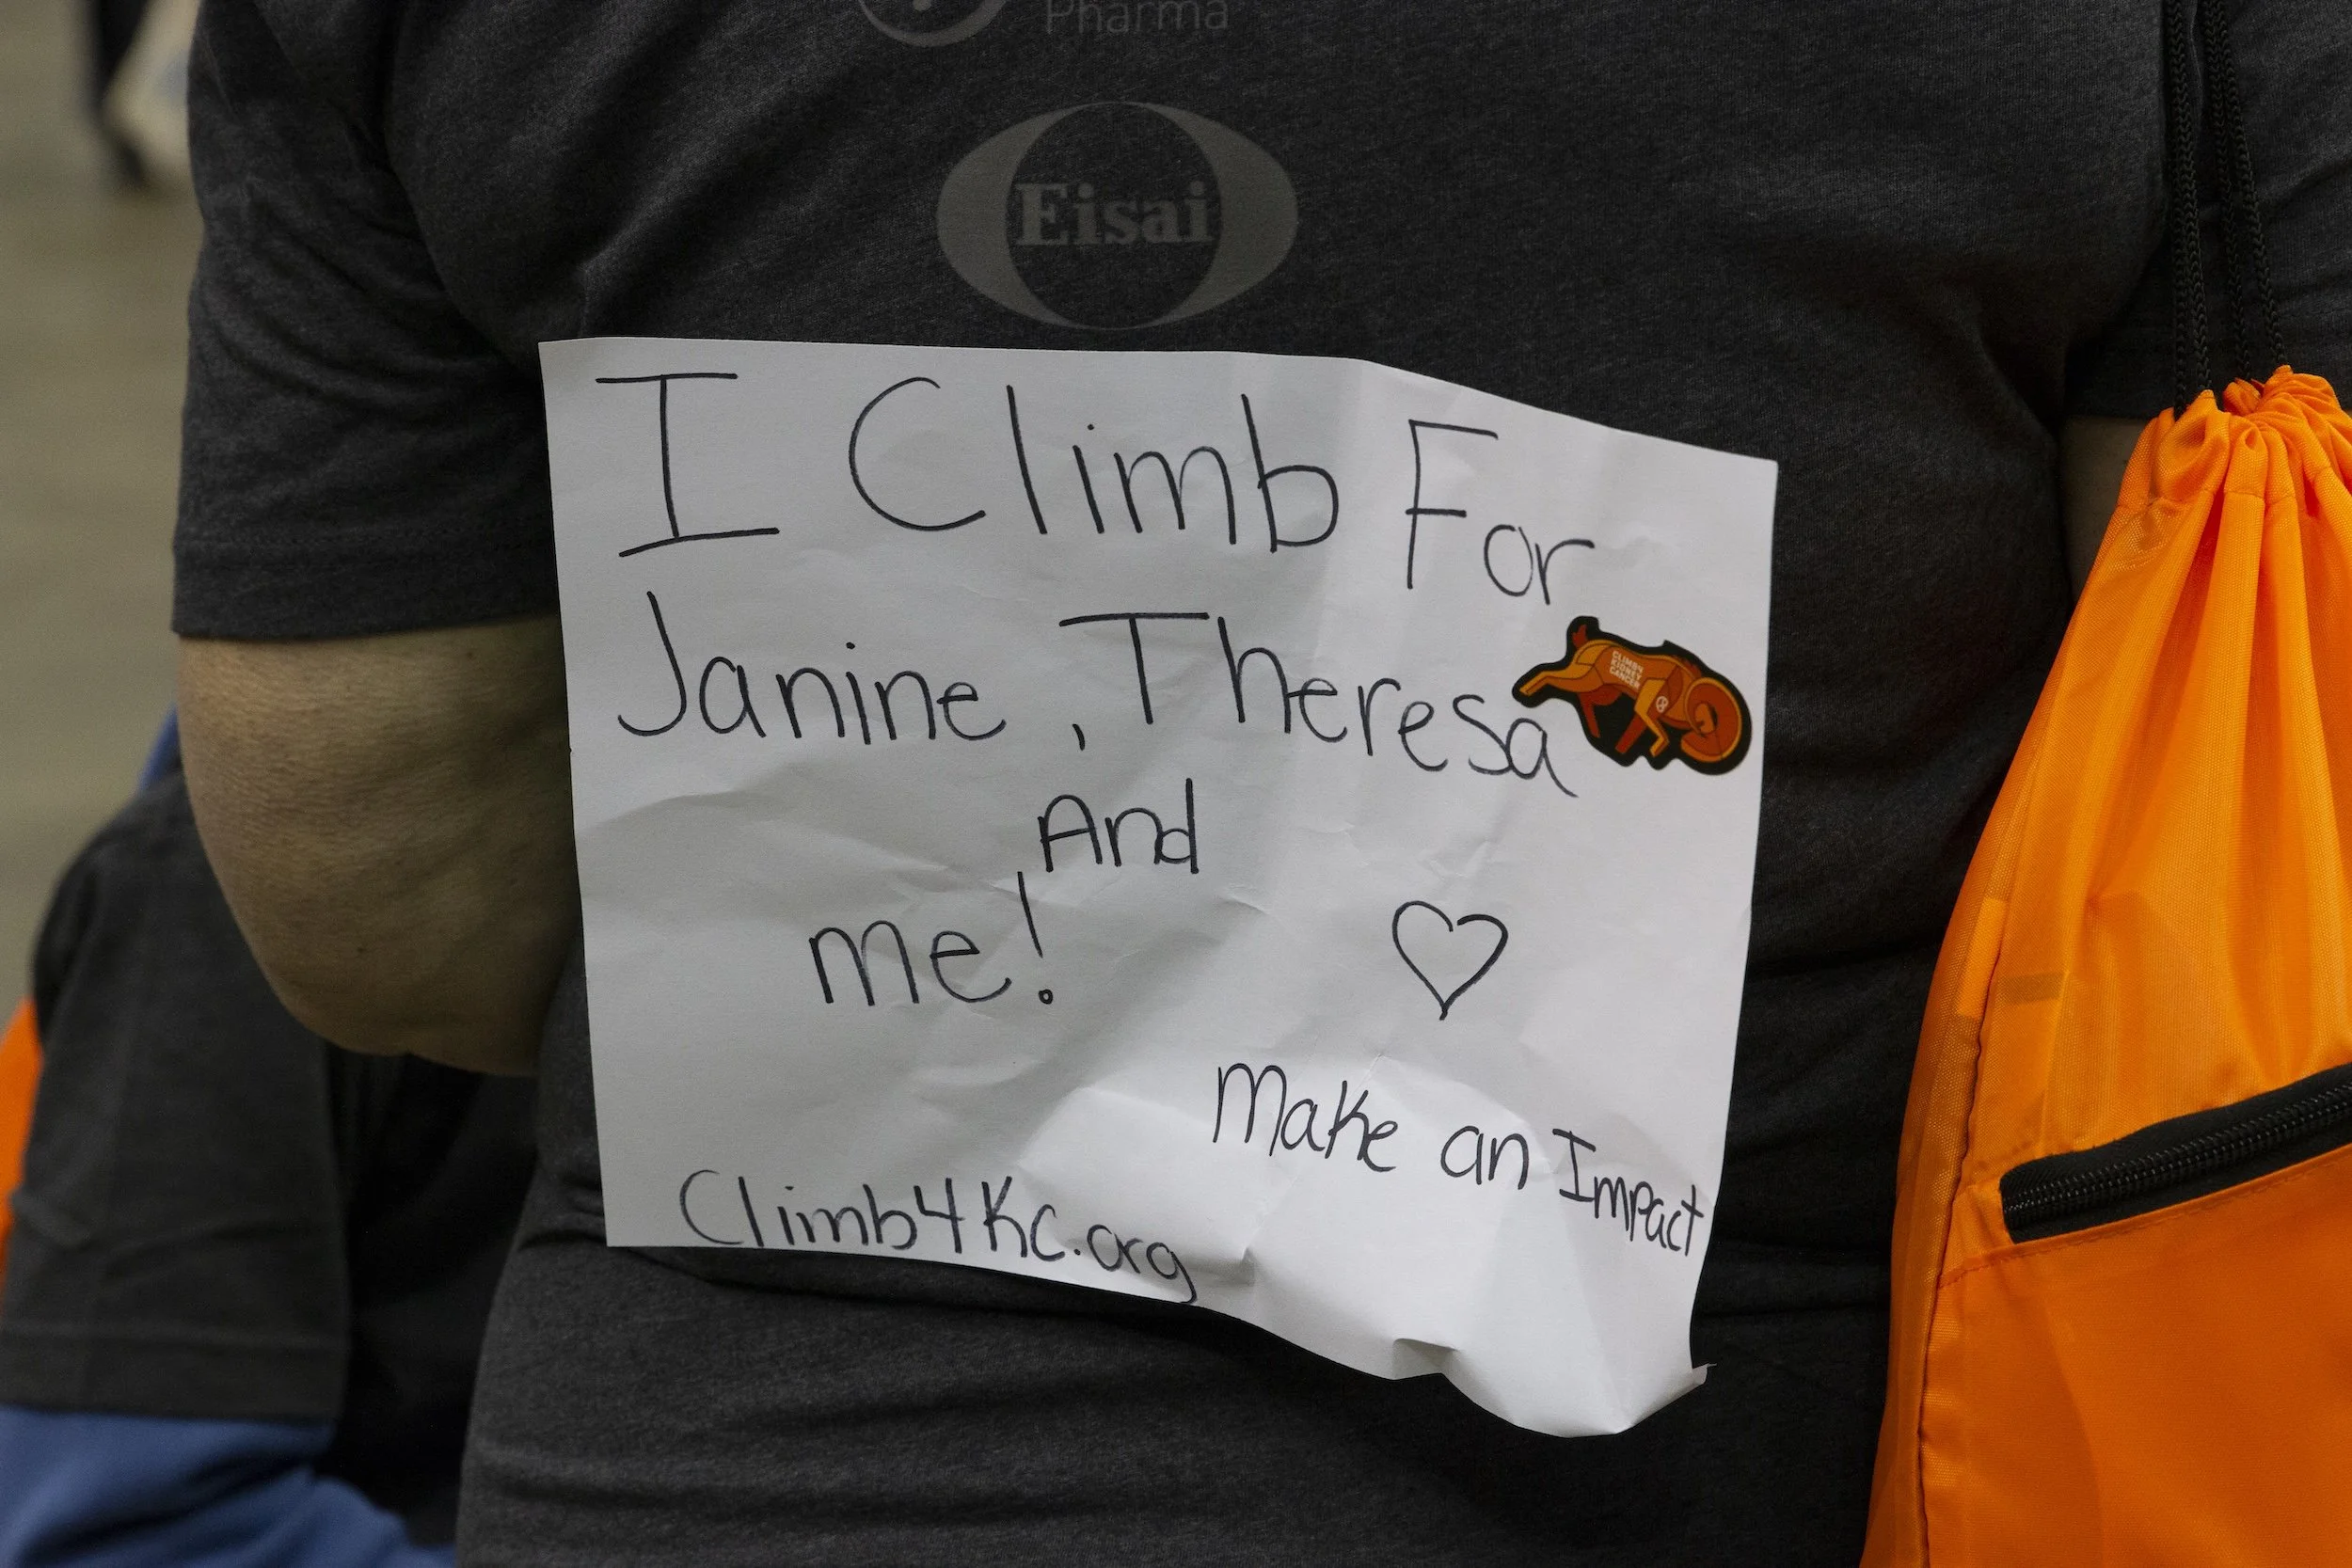 Pharma
Eisai
I Climb For
Janine, Theresa
CLIMB4
KIDNEY
CANCER
And
me!
Make an Impact
Climb4Kc.org